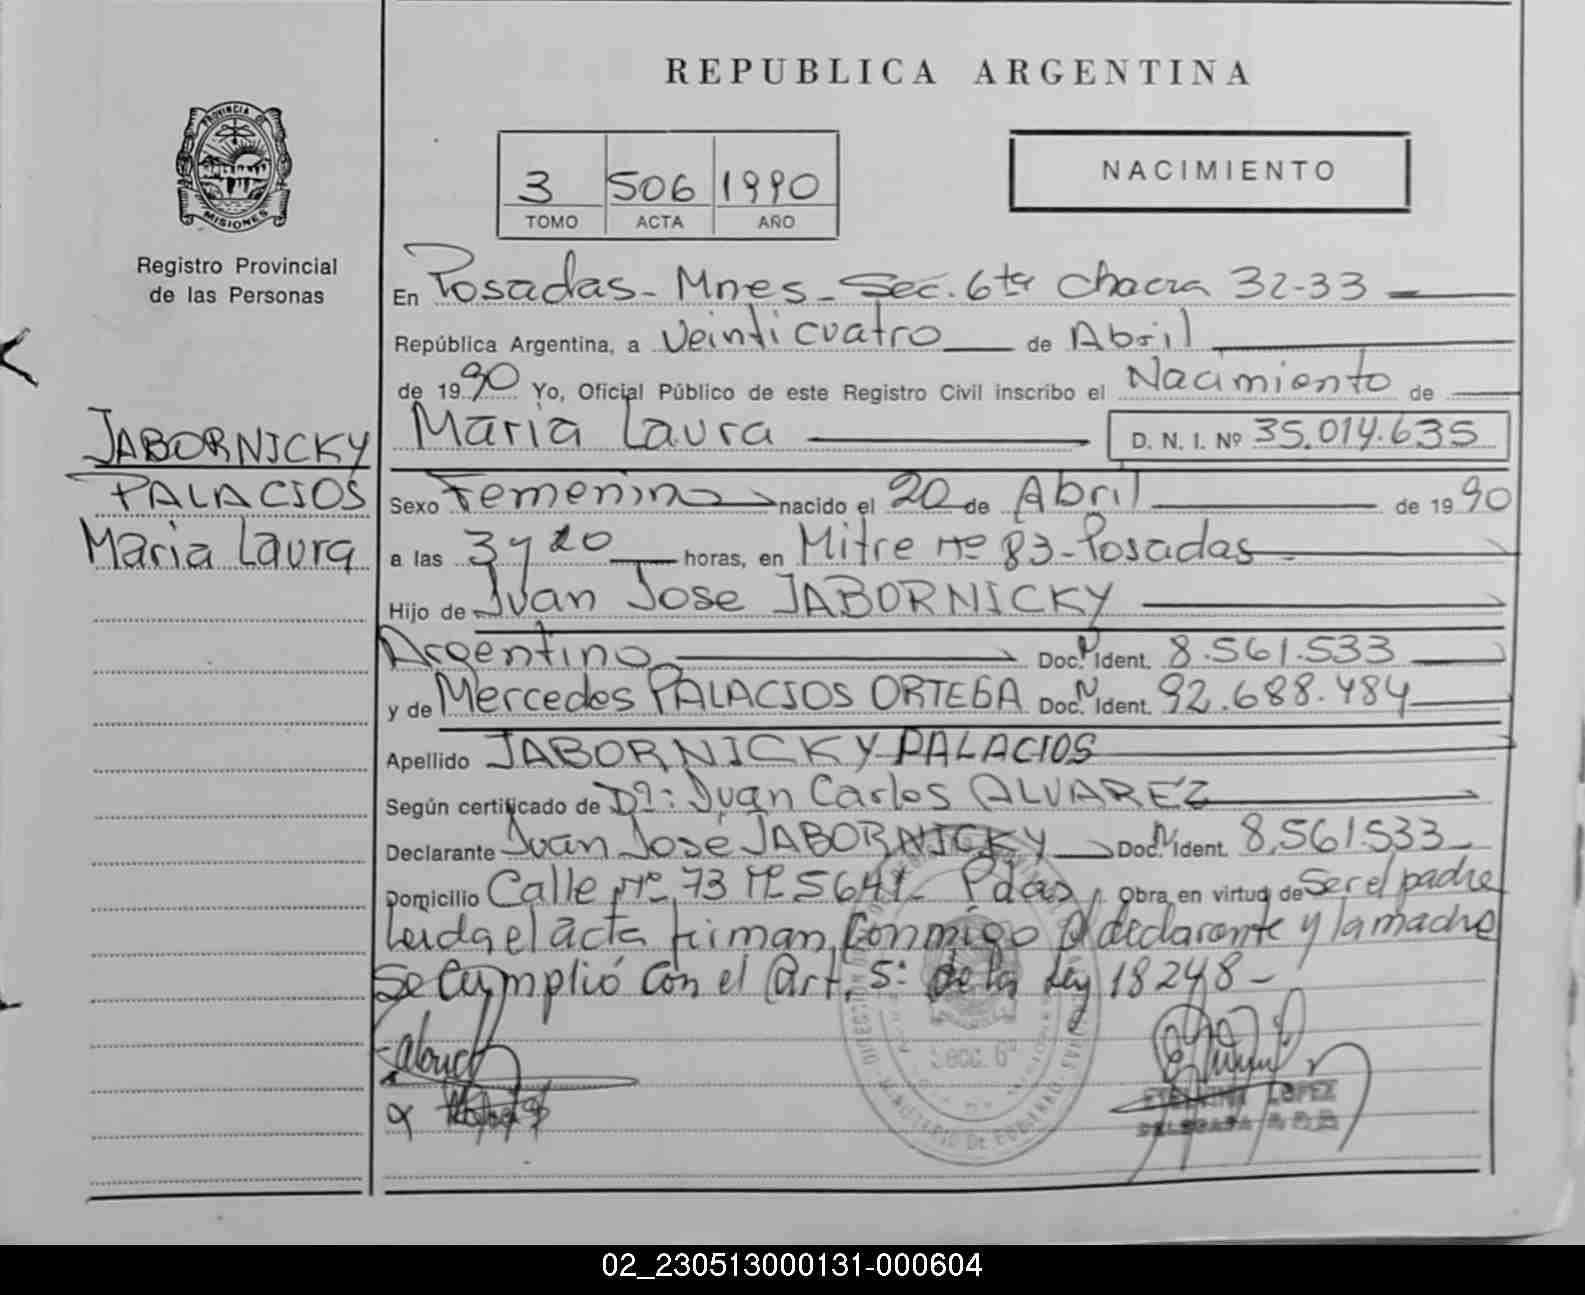 REPUBLICA ARGENTINA
PROVINCIA DE
MISIONES
Registro Provincial
de las Personas
3 506 1990
TOMO ACTA AÑO
NACIMIENTO
En Posadas - Mnes - Sec. 6ta Chacra 32-33
República Argentina, a Veinticuatro de Abril
de 1990 Yo, Oficial Público de este Registro Civil inscribo el Nacimiento de
Maria Laura D. N. I. Nº 35.014.635
JABORNICKY
PALACIOS
Maria Laura
Sexo Femenino nacido el 20 de Abril de 1990
a las 3 y 20 horas, en Mitre nº 83 - Posadas
Hijo de Juan Jose JABORNICKY
Argentino Doc. N Ident. 8.561.533
y de Mercedes PALACIOS ORTEGA Doc. N Ident. 92.688.484
Apellido JABORNICKY PALACIOS
Según certificado de Dº: Juan Carlos ALVAREZ
Declarante Juan José JABORNICKY Doc. N Ident. 8.561.533
Domicilio Calle nº 73 nº 5641 - Pdas Obra en virtud de Ser el padre
Leida el acta firman Conmigo el declarante y la madre
Se Cumplió Con el Art. 5º de la Ley 18248 -
Secc. 6ª
MINISTERIO DE GOBIERNO
LOPEZ
DELEGADA
02_230513000131-000604